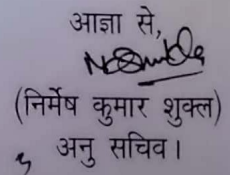 आज्ञा से,
(निर्मेष कुमार शुक्ल)
अनु सचिव।